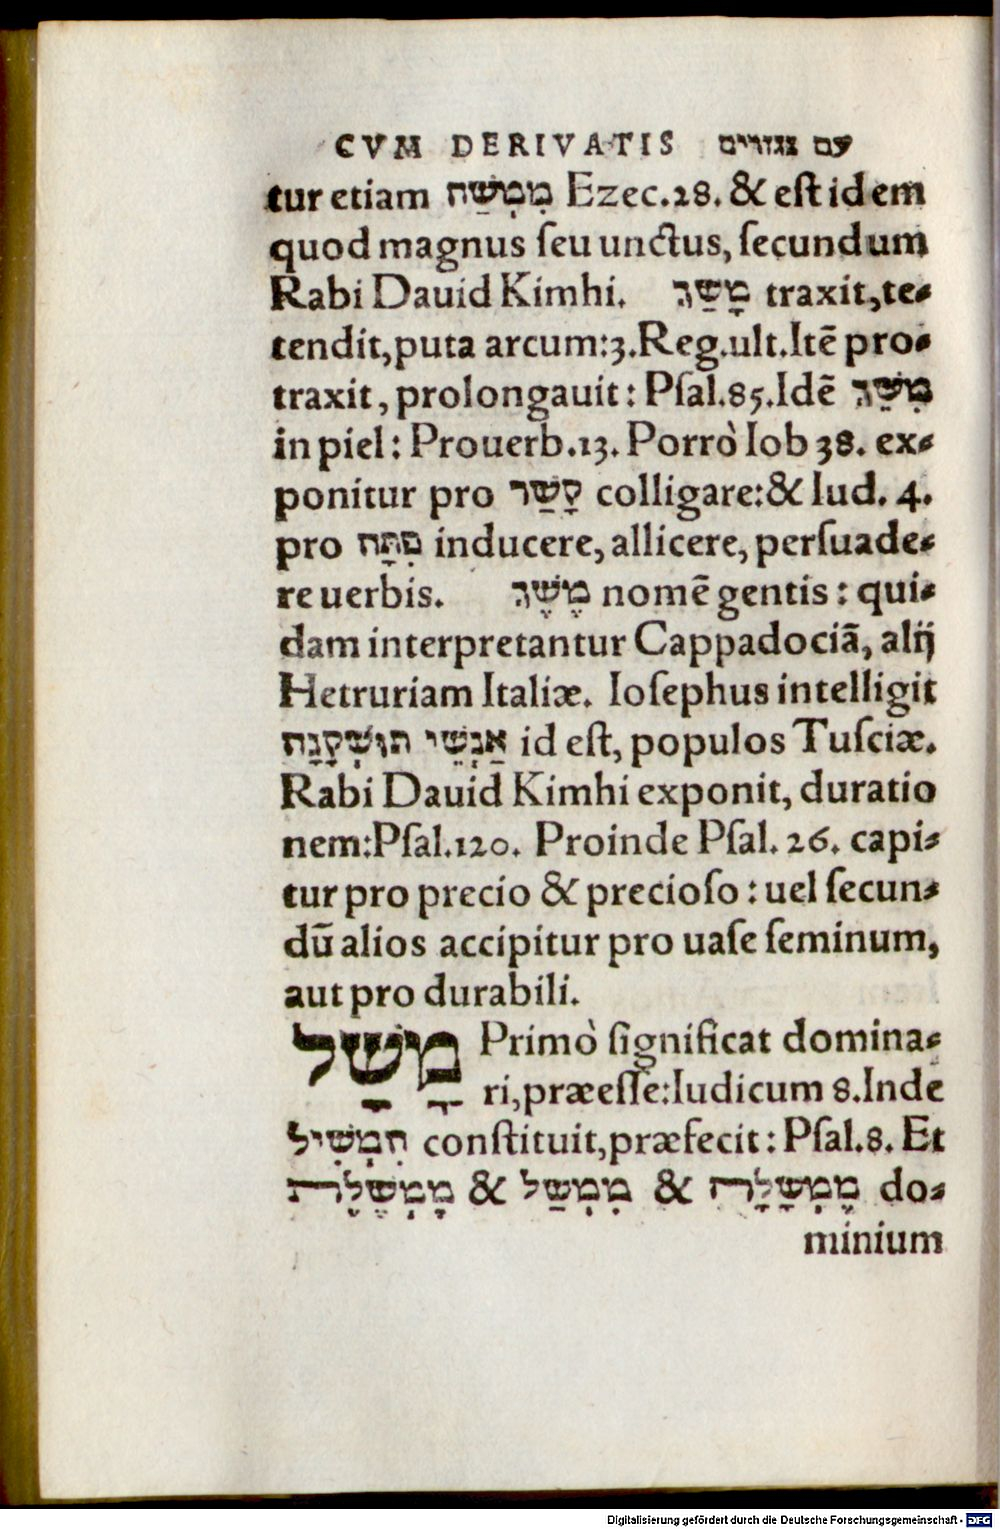 CVM DERIVATIS עם נגזרים
tur etiam מִמְשַׁח Ezec.28. & eſt idem
quod magnus ſeu unctus, ſecundum
Rabi Dauid Kimhi. מָשַׁךְ traxit, te⸗
tendit, puta arcum: 3. Reg. ult. Itē pro⸗
traxit, prolongauit: Pſal.85. Idē מִשֵּׁךְ
in piel: Prouerb.13. Porrò Iob 38. ex⸗
ponitur pro קָשַׁר colligare: & Iud. 4.
pro פִּתָּה inducere, allicere, perſuade⸗
re uerbis. מֶשֶׁךְ nomē gentis: qui⸗
dam interpretantur Cappadociā, alij
Hetruriam Italiæ. Ioſephus intelligit
אַנְשֵׁי תּוּשְׁקָנָה id eſt, populos Tuſciæ.
Rabi Dauid Kimhi exponit, duratio
nem: Pſal.120. Proinde Pſal. 26. capi⸗
tur pro precio & precioſo: uel ſecun⸗
dū alios accipitur pro uaſe ſeminum,
aut pro durabili.
מָשַׁל Primò ſignificat domina⸗
ri, præeſſe: Iudicum 8. Inde
הִמְשִׁיל conſtituit, præfecit: Pſal.8. Et
מֶמְשָׁלָה & מִמְשַׁל & מֶמְשֶׁלֶת do⸗
minium
Digitalisierung gefördert durch die Deutsche Forschungsgemeinschaft - DFG